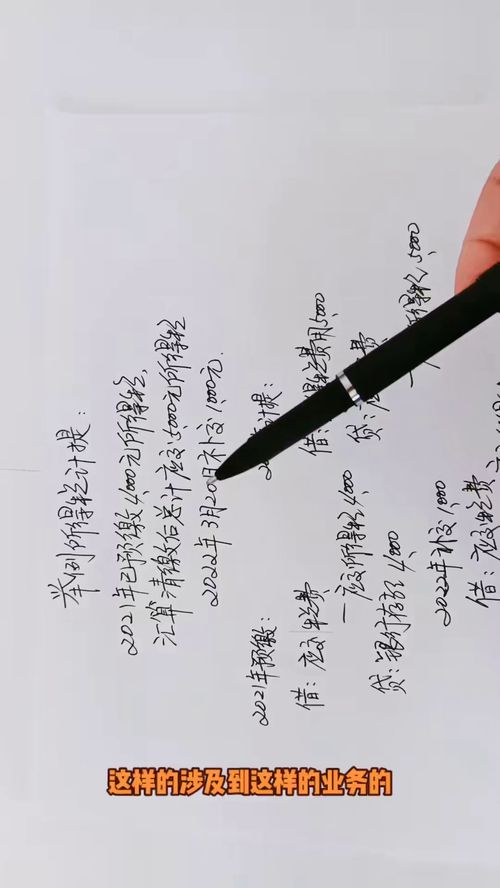 举例所得税计提：
2021年已预缴4,000元所得税，
汇算清缴后总计应交5,000元所得税
2022年3月20日补交1,000元.
2021年预缴：
借：应交税费
一应交所得税 4,000
贷：银行存款 4,000
计提：
借：税费用5,000
贷：费
所得税 5,000
2022年补交1,000
借：应交税费
这样的涉及到这样的业务的